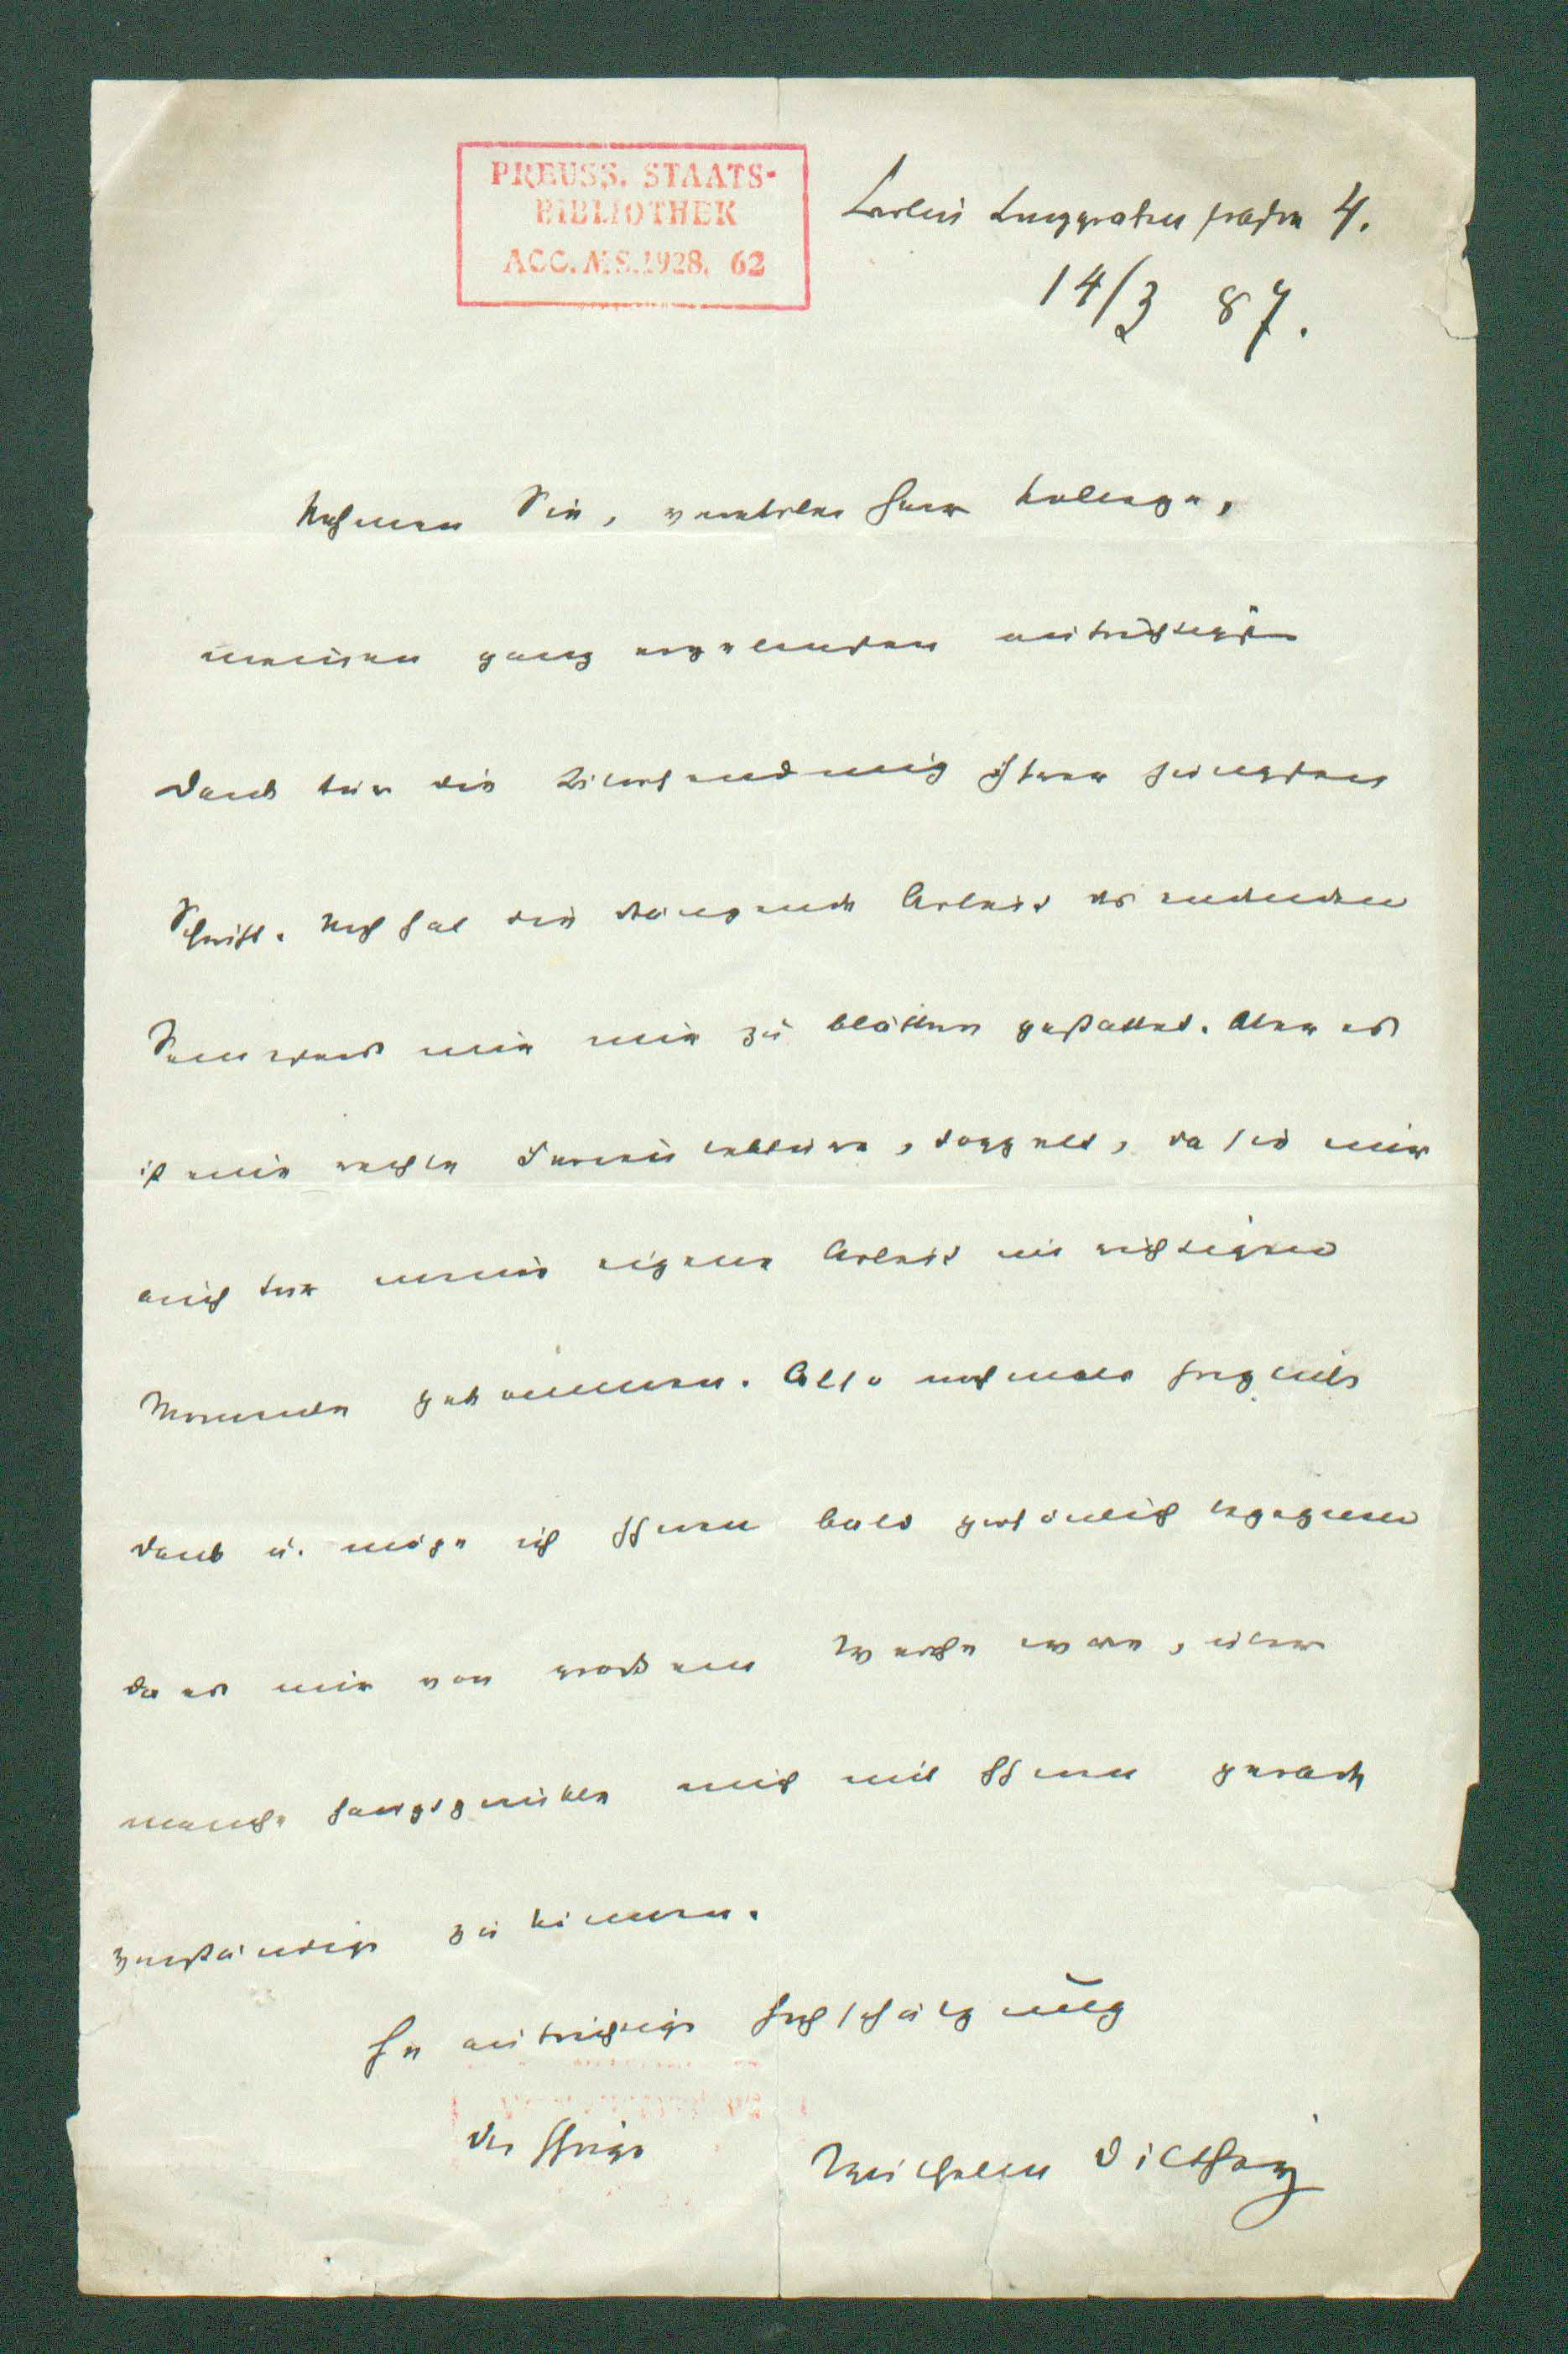 PREUSS. STAATS-
BIBLIOTHEK
ACC. MS. 1928. 62
Berlin Burggrafenstraße 4.
14/3 87.
Nehmen Sie, verehrter Herr College,
meinen ganz ergebensten aufrichtigsten
Dank für die Übersendung Ihrer jüngsten
Schrift. Noch hat die drängende Arbeit des endenden
Semesters mir nur zu blättern gestattet. Aber es
ist eine rechte Ferienlektüre, doppelt, da sie mir
auch für meine eigene Arbeit im richtigen
Momente gekommen. Also nochmals herzlich
Dank u. möge ich Ihnen bald persönlich begegnen
da es mir von großem Werthe wäre, über
manche Hauptpunkte mich mit Ihnen gerade
verständigen zu können.
In aufrichtiger Hochschätzung
der Ihrige
Wilhelm Dilthey